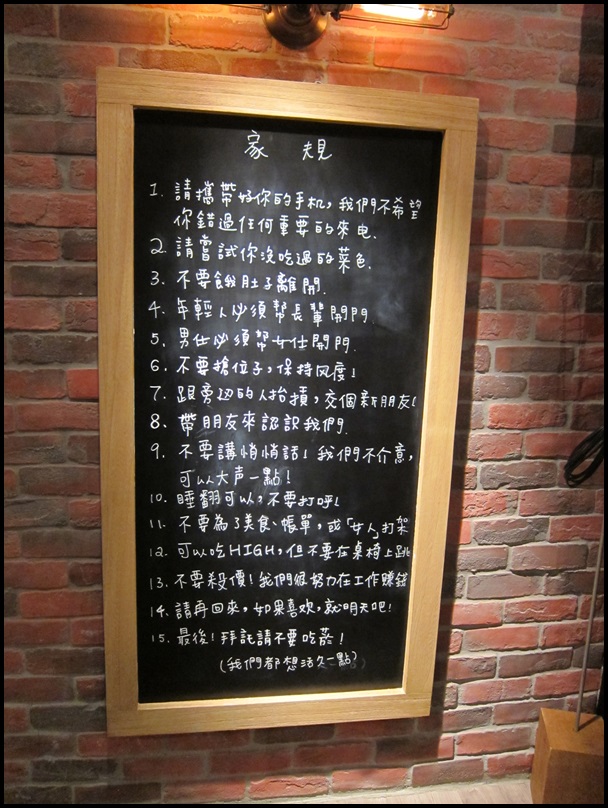 家規
1. 請攜帶好你的手机，我們不希望
你錯過任何重要的來电.
2. 請嘗試你沒吃過的菜色.
3. 不要餓肚子離開.
4. 年輕人必須幫長輩開門.
5. 男仕必須幫女仕開門.
6. 不要搶位子，保持风度!
7. 跟旁边的人抬槓，交個新朋友!
8. 帶朋友來認識我們.
9. 不要講悄悄話! 我們不介意，
可以大声一點!
10. 睡翻可以，不要打呼!
11. 不要為了美食、帳單，或「女人」打架
12. 可以吃HIGH，但不要在桌椅上跳
13. 不要殺價! 我們很努力在工作賺錢
14. 請再回來，如果喜欢，就明天吧!
15. 最後! 拜託請不要吃菸!
(我們都想活久一點)